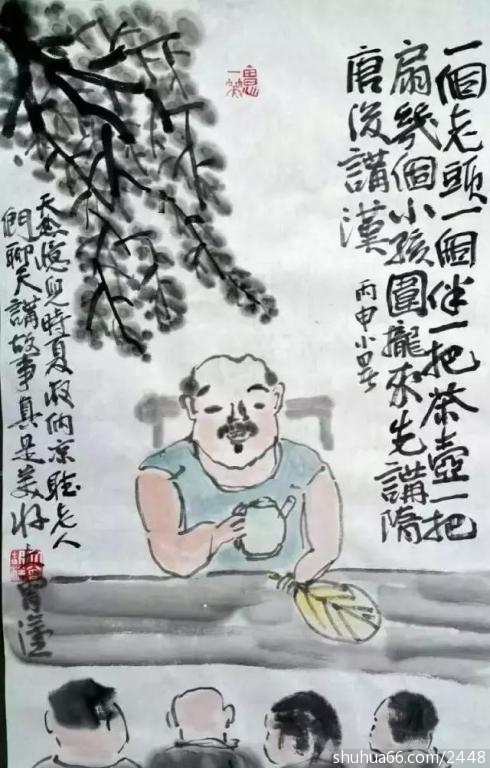 一個老頭一個伴一把茶壺一把
扇幾個小孩圍攏來先講隋
唐後講漢
丙申小暑
天熱憶兒時夏夜納涼聽老人
們聊天講故事真是美好
shuhua66.com/2448